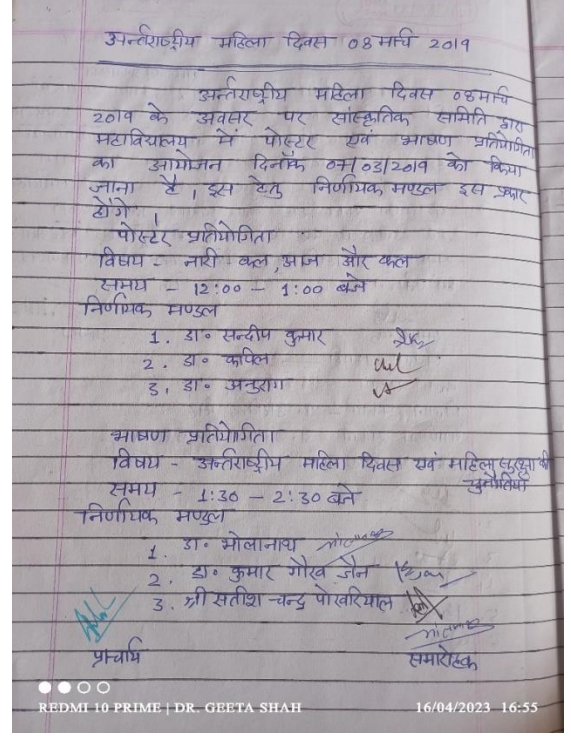 अर्न्तराष्ट्रीय महिला दिवस 08 मार्च 2019
अर्न्तराष्ट्रीय महिला दिवस 08 मार्च
2019 के अवसर पर सांस्कृतिक समिति द्वारा
महाविद्यालय में पोस्टर एवं भाषण प्रतियोगिता
का आयोजन दिनाँक 07/03/2019 को किया
जाना है, इस हेतु निर्णायक मण्डल इस प्रकार
होंगे।
पोस्टर प्रतियोगिता
विषय - नारी कल, आज और कल
समय - 12:00 - 1:00 बजे
निर्णायक मण्डल
1. डा॰ सन्दीप कुमार
2. डा॰ कपिल
3. डा॰ अनुराग
भाषण प्रतियोगिता
विषय - अर्न्तराष्ट्रीय महिला दिवस एवं महिला सुरक्षा की
चुनौतियाँ
समय - 1:30 - 2:30 बजे
निर्णायक मण्डल
1. डा॰ भोलानाथ
2. डा॰ कुमार गौरव जैन
3. श्री सतीश चन्द्र पोखरियाल
प्राचार्य
समारोहक
REDMI 10 PRIME | DR. GEETA SHAH
16/04/2023 16:55